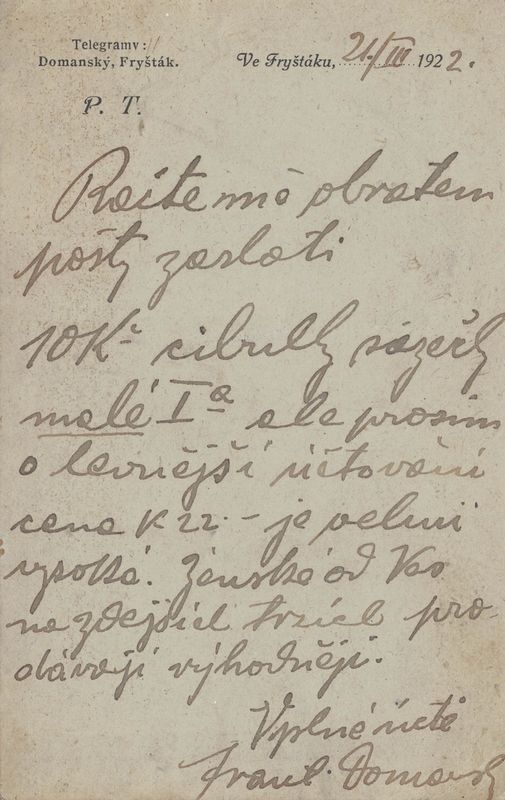 Telegramy:
Domanský, Fryšták.
Ve Fryštáku, 21./III 1922.
P. T.
Račte mě obratem
pošty zaslati
10 Kº cibulky sázečky
malé Iª ale prosím
o levnější účtování
cena K 22.- je velmi
vysoká. Ženské od Vás
na zdejších trzích pro-
dávají výhodněji.
V plné úctě
Frant. Domanský